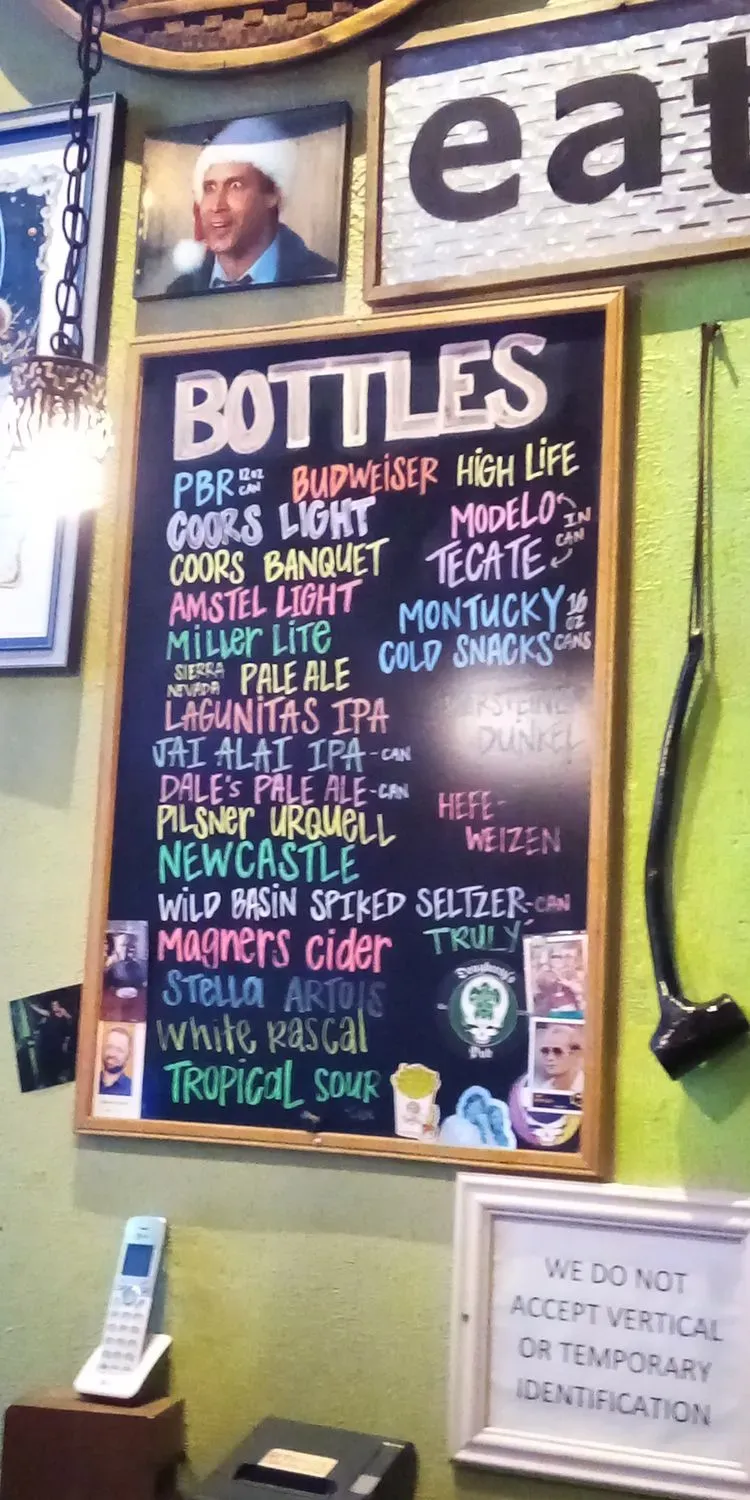 eat
BOTTLES
PBR 12 oz CAN BUDWEISER HIGH LiFE
COORS LIGHT
MODELO
IN CAN
COORS BANQUET
TECATE
AMSTEL LIGHT
MONTUCKY 16 OZ CANS
Miller Lite
COLD SNACKS
SIERRA NEVADA PALE ALE
LAGUNiTAS IPA
DUNKEL
JAI ALAI IPA - CAN
DALE's PALE ALE - CAN
HEFE-
WEIZEN
PiLSNer URQUell
NEWCASTLE
WILD BASIN SPIKED SELTZER - CAN
Magners cider
TRULY
STella ARTOIS
White Rascal
TROPICAL SOUR
Pub
WE DO NOT
ACCEPT VERTICAL
OR TEMPORARY
IDENTIFICATION